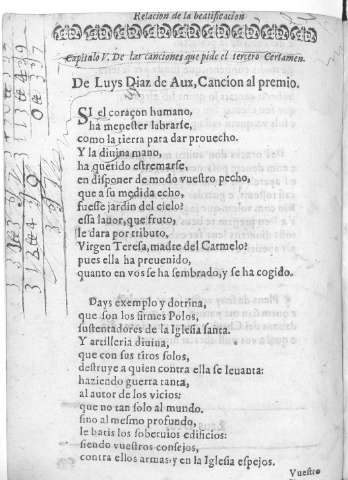 Relacion de la beatificacion
Capitulo V. De las canciones que pide el tercero Certamen.
De Luys Diaz de Aux, Cancion al premio.
SI el coraçon humano,
ha menester labrarse,
como la tierra para dar prouecho.
Y la diuina mano,
ha querido estremarse,
en disponer de modo vuestro pecho,
que a su medida echo,
fuesse jardin del cielo?
essa lauor, que fruto,
le dara por tributo,
Virgen Teresa, madre del Carmelo?
pues ella ha preuenido,
quanto en vos se ha sembrado, y se ha cogido.
Days exemplo y dotrina,
que son los firmes Polos,
sustentadores de la Iglesia santa.
Y artilleria diuina,
que con sus tiros solos,
destruye a quien contra ella se leuanta:
haziendo guerra tanta,
al autor de los vicios:
que no tan solo al mundo.
sino al mesmo profundo,
le batis los soberuios edificios:
siendo vuestros consejos,
contra ellos armas y en la Iglesia espejos.
Vuestro